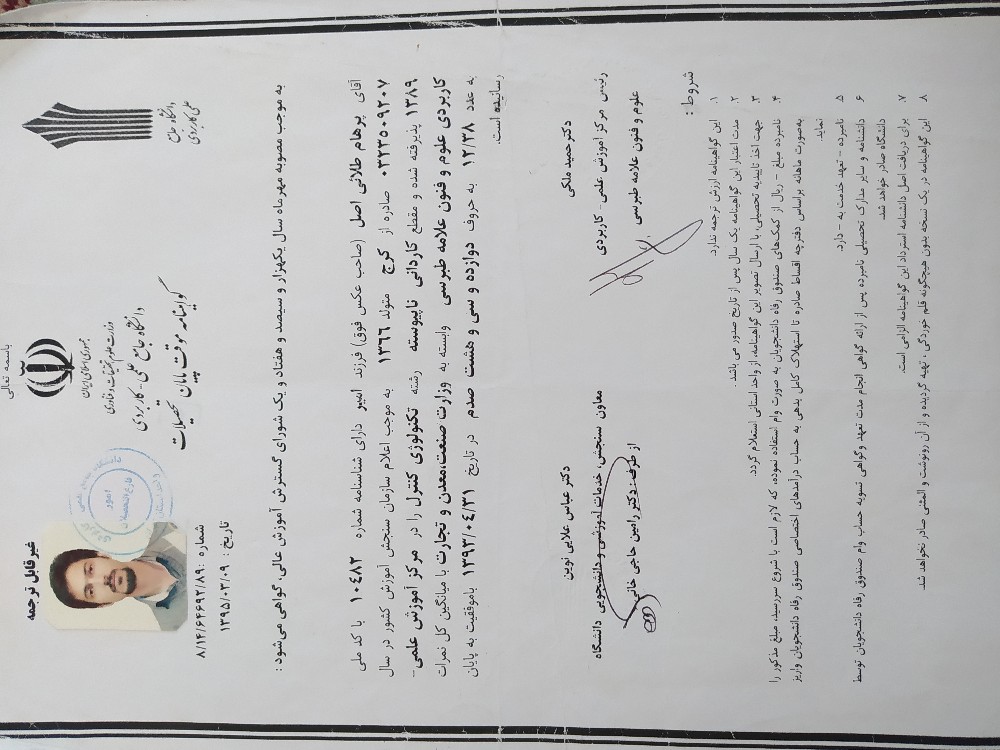 باسمه تعالی
جمهوری اسلامی ایران
وزارت علوم، تحقیقات و فناوری
دانشگاه جامع علمی - کاربردی
گواهینامه موقت پایان تحصیلات
دانشگاه جامع
علمی کاربردی
غیرقابل ترجمه
شماره : ۸/۱۴/۶۴۶۹۲/۸۹
تاریخ : ۱۳۹۵/۰۳/۰۹
امور
فارغ التحصیلان
به موجب مصوبه مهرماه سال یکهزار و سیصد و هفتاد و یک شورای گسترش آموزش عالی، گواهی می‌شود :
آقای پرهام طلائی اصل (صاحب عکس فوق) فرزند امیر دارای شناسنامه شماره ۱۰۴۸۲ با کد ملی
۰۳۲۳۵۰۹۲۰۷ صادره از کرج متولد ۱۳۶۶ به موجب اعلام سازمان سنجش آموزش کشور در سال
۱۳۸۹ پذیرفته شده و مقطع کاردانی ناپیوسته رشته تکنولوژی کنترل را در مرکز آموزش علمی-
کاربردی علوم و فنون علامه طبرسی وابسته به وزارت صنعت،معدن و تجارت با میانگین کل نمرات
به عدد ۱۲/۳۸ به حروف دوازده و سی و هشت صدم در تاریخ ۱۳۹۳/۰۴/۳۱ باموفقیت به پایان
رسانیده است.
دکتر حمید ملکی
رئیس مرکز آموزش علمی - کاربردی
علوم و فنون علامه طبرسی
دکتر عباس علایی نوین
معاون سنجش، خدمات آموزشی و دانشجویی دانشگاه
از طرف: دکتر رامین حاجی خانی
شروط :
۱. این گواهینامه ارزش ترجمه ندارد.
۲. مدت اعتبار این گواهینامه یک سال پس از تاریخ صدور می باشد.
۳. جهت اخذ تاییدیه تحصیلی، با ارسال تصویر این گواهینامه، از واحد استانی استعلام گردد.
۴. نامبرده مبلغ - ریال از کمک‌های صندوق رفاه دانشجویان به صورت وام استفاده نموده، که لازم است با شروع سررسید، مبلغ مذکور را
به‌صورت ماهانه براساس دفترچه اقساط صادره تا استهلاک کامل بدهی به حساب درآمدهای اختصاصی صندوق رفاه دانشجویان واریز
نماید.
۵. نامبرده - تعهد خدمت به - دارد.
۶. دانشنامه و سایر مدارک تحصیلی نامبرده پس از ارائه گواهی انجام مدت تعهد وگواهی تسویه حساب وام صندوق رفاه دانشجویان توسط
دانشگاه صادر خواهد شد.
۷. برای دریافت اصل دانشنامه استرداد این گواهینامه الزامی است.
۸. این گواهینامه در یک نسخه بدون هیچگونه قلم خوردگی ، تهیه گردیده و از آن رونوشت و المثنی صادر نخواهد شد.